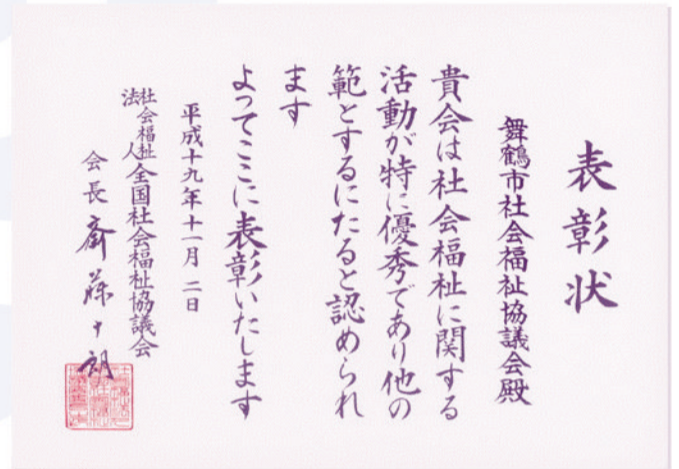 表彰状
舞鶴市社会福祉協議会殿
貴会は社会福祉に関する
活動が特に優秀であり他の
範とするにたると認められ
ます
よってここに表彰いたします
平成十九年十一月二日
社会福祉法人全国社会福祉協議会
会長 斎藤十朗